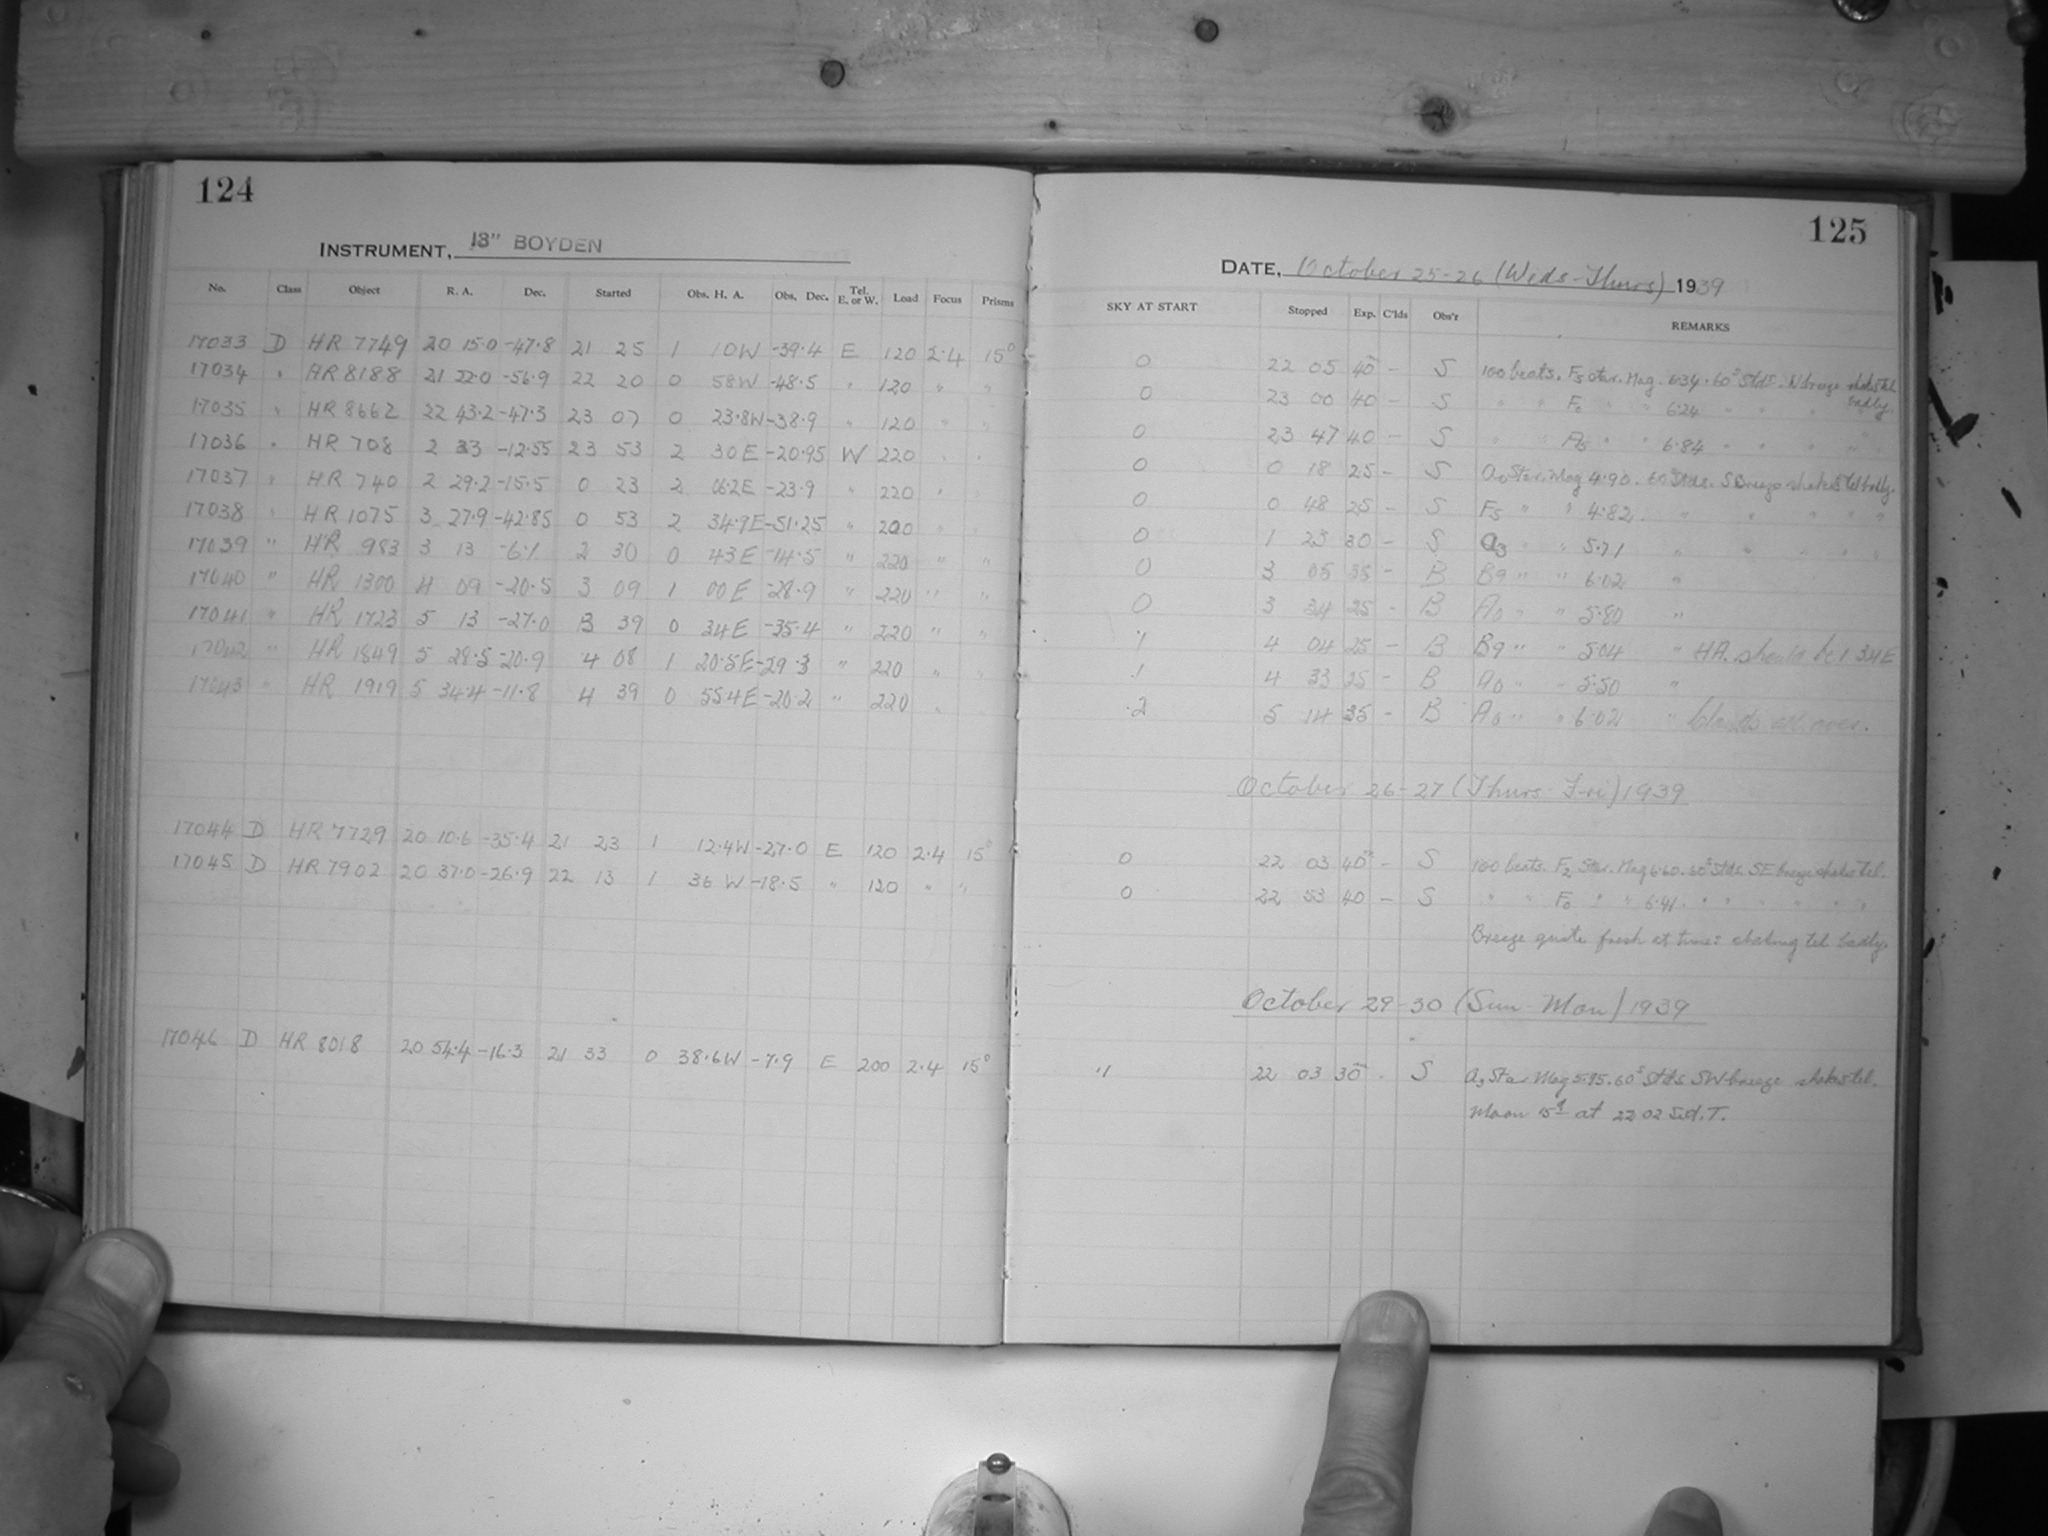 124
INSTRUMENT, 13" BOYDEN
No. Class Object R. A. Dec. Started Obs. H. A. Obs. Dec. Tel. E. or W. Load Focus Prisms
17033 D HR 7749 20 15.0 -47.8 21 25 1 10W -39.4 E 120 2.4 15°
17034 " HR 8188 21 22.0 -56.9 22 20 0 58W -48.5 " 120 " "
17035 " HR 8662 22 43.2 -47.3 23 07 0 23.8W -38.9 " 120 " "
17036 " HR 708 2 33 -12.55 23 53 2 30E -20.95 W 220 " "
17037 " HR 740 2 29.2 -15.5 0 23 2 06.2E -23.9 " 220 "
17038 " HR 1075 3 27.9 -42.85 0 53 2 34.9E -51.25 " 220 "
17039 " HR 983 3 13 -6.1 2 30 0 43E -14.5 " 220 " "
17040 " HR 1300 4 09 -20.5 3 09 1 00E -28.9 " 220 " "
17041 " HR 1723 5 13 -27.0 3 39 0 34E -35.4 " 220 " "
17042 " HR 1849 5 28.5 -20.9 4 08 1 20.5E -29.3 " 220 "
17043 " HR 1919 5 34.4 -11.8 4 39 0 55.4E -20.2 " 220 "
17044 D HR 7729 20 10.6 -35.4 21 23 1 12.4W -27.0 E 120 2.4 15°
17045 D HR 7902 20 37.0 -26.9 22 13 1 36 W -18.5 " 120 " "
17046 D HR 8018 20 54.4 -16.3 21 33 0 38.6W -7.9 E 200 2.4 15°
125
DATE, October 25-26 (Weds-Thurs) 1939
SKY AT START Stopped Exp. C'lds Obs'r REMARKS
0 22 05 40 - S 100 beats. F5 star. Mag. 6.34. 60s Stds. N breeze shakes tel. badly.
0 23 00 40 - S " " F0 " " 6.24 " " " "
0 23 47 40 - S " " A3 " " 6.84 " " " "
0 0 18 25 - S A0 Star. Mag 4.90. 60s Stds. S Breeze shakes tel badly.
0 0 48 25 - S F5 " " 4.82 " " " "
0 1 23 30 - S A3 " " 5.71 " " " "
0 3 05 35 - B B9 " " 6.02 "
0 3 34 25 - B A0 " " 5.80 "
.1 4 04 25 - B B9 " " 5.04 " HA. should be 1 34E
.1 4 33 25 - B A0 " " 5.50 "
.2 5 14 35 - B A0 " " 6.02 " Clouds all over.
October 26-27 (Thurs-Fri) 1939
0 22 03 40 - S 100 beats. F2 Star. Mag 6.60. 60s Stds. SE breeze shakes tel.
0 22 53 40 - S " " F0 " " 6.41. " " " " "
Breeze quite fresh at times shaking tel. badly.
October 29-30 (Sun-Mon) 1939
.1 22 03 30 - S A3 Star Mag 5.95. 60s Stds SW breeze shakes tel.
Moon at 22 02 Sid. T.